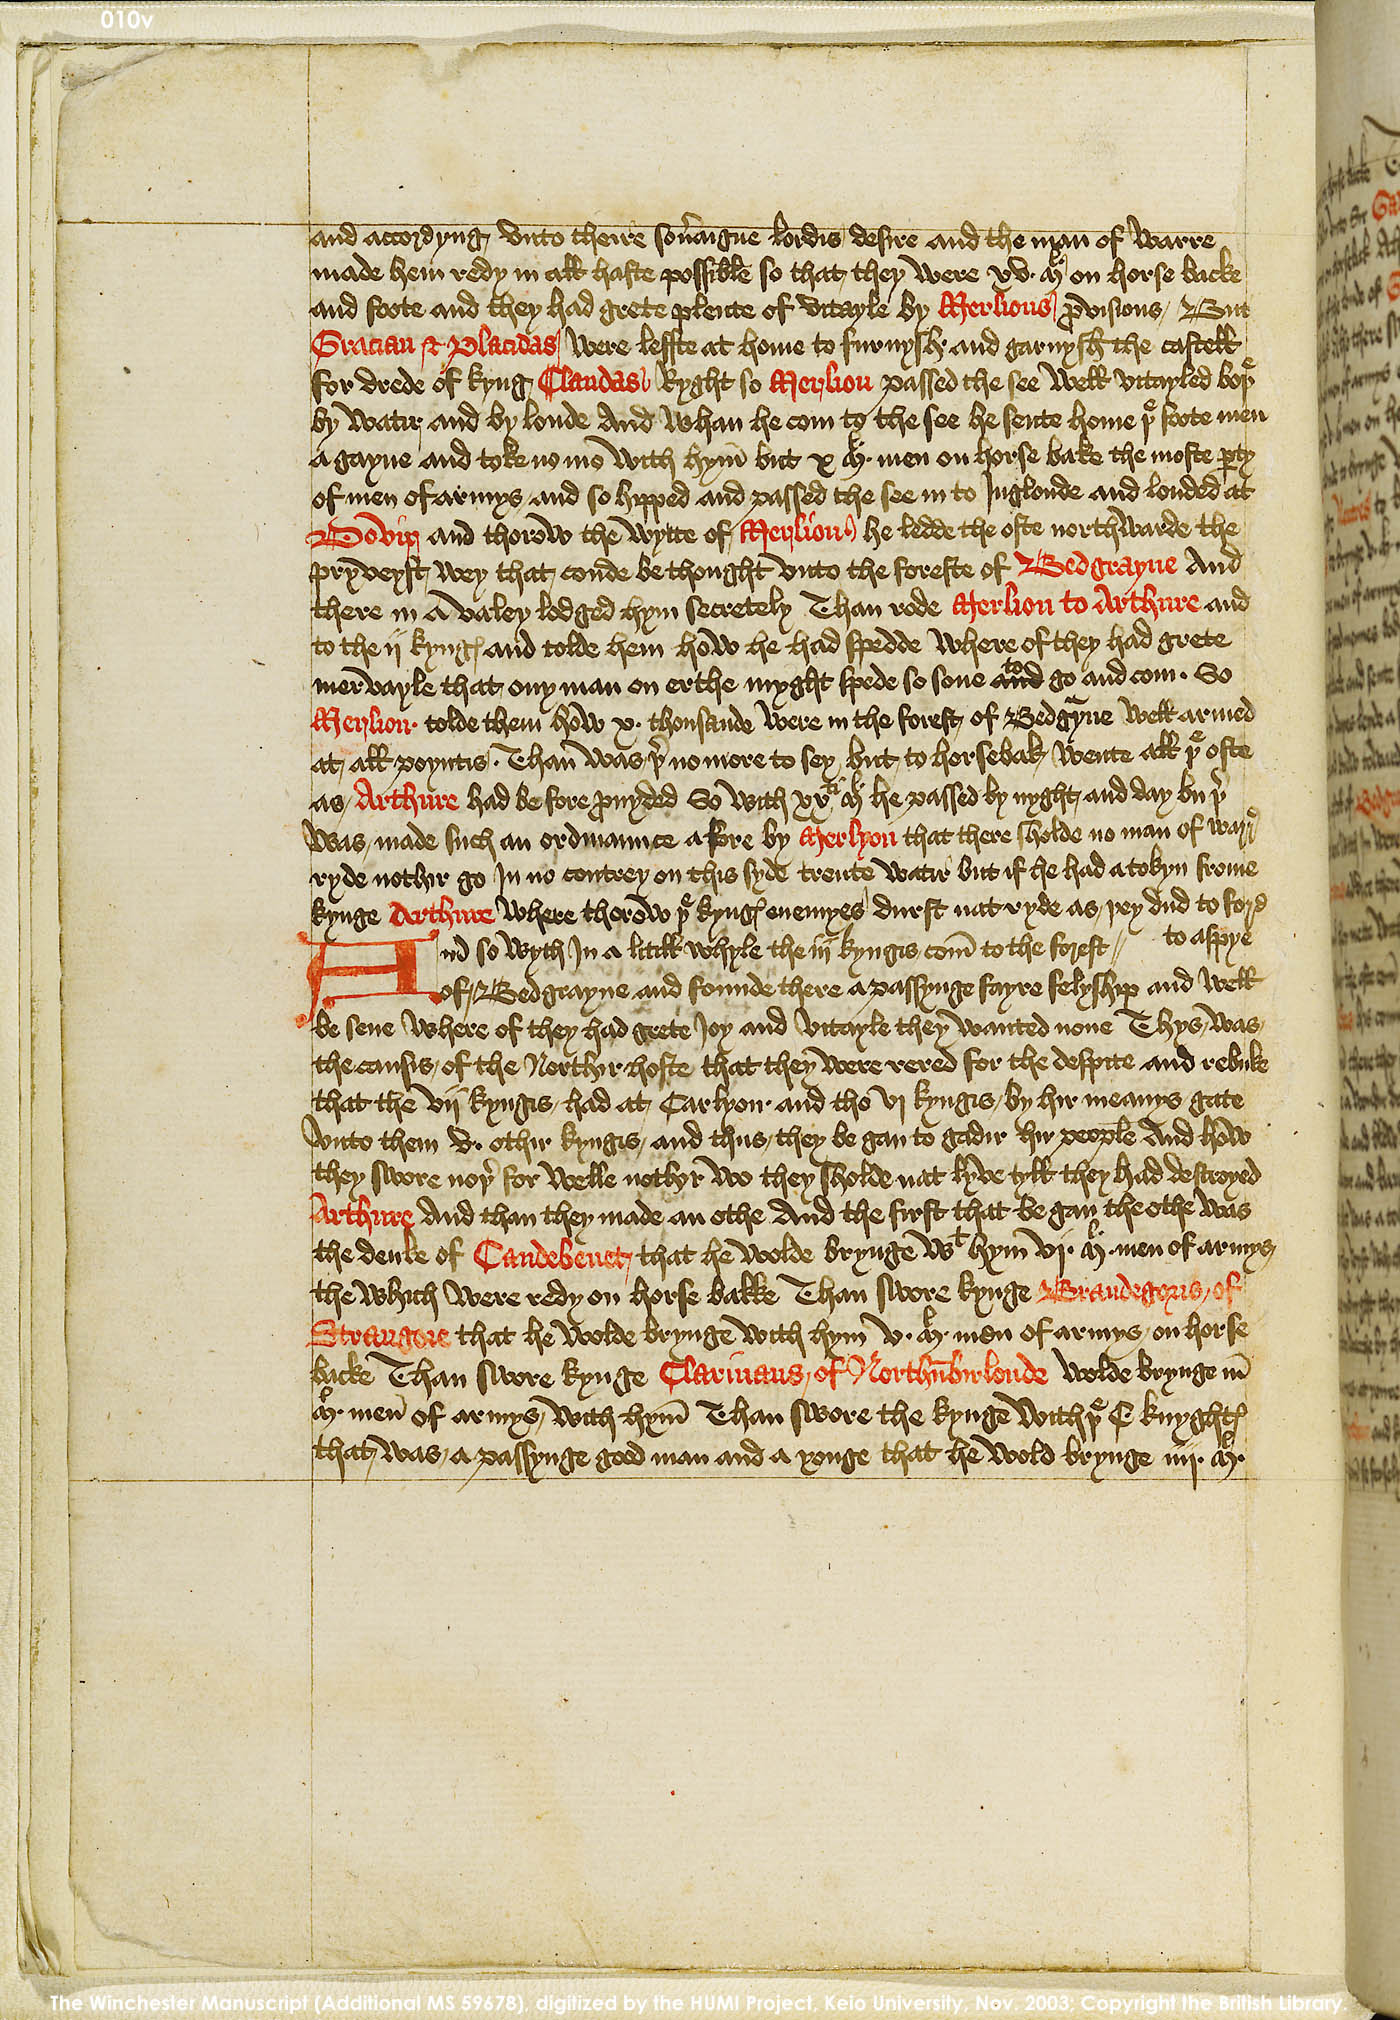 010v
and accordyng vnto theire sou̅aigne lordis desire and the man of warre
made hem redy in all haste possible so that they were xv. Mˡ on horse backe
and foote and they had grete plente of vitayle by Merlions ꝓvisions But
Gracian & Placidas were leffte at home to furnysh and garnysh the castell
for drede of kyng Claudas Ryght so Merlion passed the see well vitayled boþe
by watir and by londe And whan he com to the see he sente home þe foote men
a gayne and toke no mo with hym̅ but x Mˡ. men on horse bake the moste ꝑty
of men of armys and so shipped and passed the see in to Inglonde and londed at
Dovir and thorow the wytte of Merlion he ledde the oste northwarde the
pryveyst wey that coude be thought vnto the foreste of Bedgrayne And
there in a valey lodged hym secretely Than rode Merlion to Arthure and
to the ij kyngꝭ and tolde hem how he had spedde where of they had grete
mervayle that ony man on erthe myght spede so sone and to go and com. So
Merlion. tolde them how x. thousande were in the forest of Bedgᵃyne well armed
at all poyntis. Than was þʳ no more to sey but to horsebak wente all þe oste
as Arthure had be fore ꝓuyded So with xxᵗⁱ Mˡ he passed by nyght and day but þʳ
was made such an ordinaunce a fore by Merlyon that there sholde no man of warre
ryde nothir go In no contrey on this syde trente watir but if he had a tokyn frome
kynge Arthure where thorow þe kyngꝭ enemyes durst nat ryde as þey dud to ford
And so wyth In a litill whyle the iij kyngis com̅ to the forest // to aspye
of Bedgrayne and founde there a passynge fayre felyship and well
be sene where of they had grete Joy and vitayle they wanted none Thys was
the causis of the Northir hoste that they were rered for the despite and rebuke
that the vij kyngis had at Carlyon and tho vj kyngis by hir meanys gate
vnto them v. othir kyngis and thus they be gan to gadir hir people And how
they swore noþʳ for welle nothyr wo they sholde nat lyve tyll they had destroyed
Arthure And than they made an othe And the first that be gan the othe was
the deuke of Candebenet that he wolde brynge wᵗ hym vj. Mˡ. men of armys
the which were redy on horse bakke Than swore kynge Brandegoris of
Strangore that he wolde brynge with hym v. Mˡ. men of armys on horse
backe Than swore kynge Clarivaus of Northūbirlonde wolde brynge iij
Mˡ. men of armys with hym̅ Than swore the kynge with þe C knyghtꝭ
that was a passynge good man and a yonge that he wold brynge iiij. Mˡ.
The Winchester Manuscript (Additional MS 59678), digitized by the HUMI Project, Keio University, Nov. 2003; Copyright the British Library.